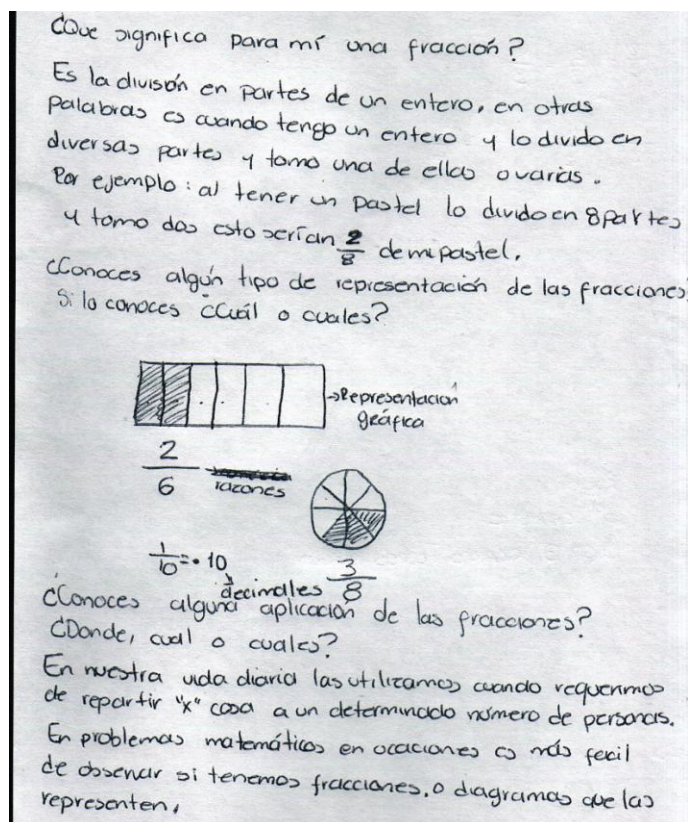 ¿Que significa para mí una fracción?
Es la división en partes de un entero, en otras
palabras es cuando tengo un entero y lo divido en
diversas partes y tomo una de ellas o varias.
Por ejemplo: al tener un pastel lo divido en 8 partes
y tomo dos esto serían 2/8 de mi pastel.
¿Conoces algún tipo de representación de las fracciones?
Si lo conoces ¿Cuál o cuales?
→Representación
gráfica
2/6 razones
1/10 = .10
decimales
3/8
¿Conoces alguna aplicación de las fracciones?
¿Donde, cual o cuales?
En nuestra vida diaria las utilizamos cuando requerimos
de repartir "x" cosa a un determinado número de personas.
En problemas matemáticos en ocaciones es más fecil
de observar si tenemos fracciones, o diagramas que las
representen,